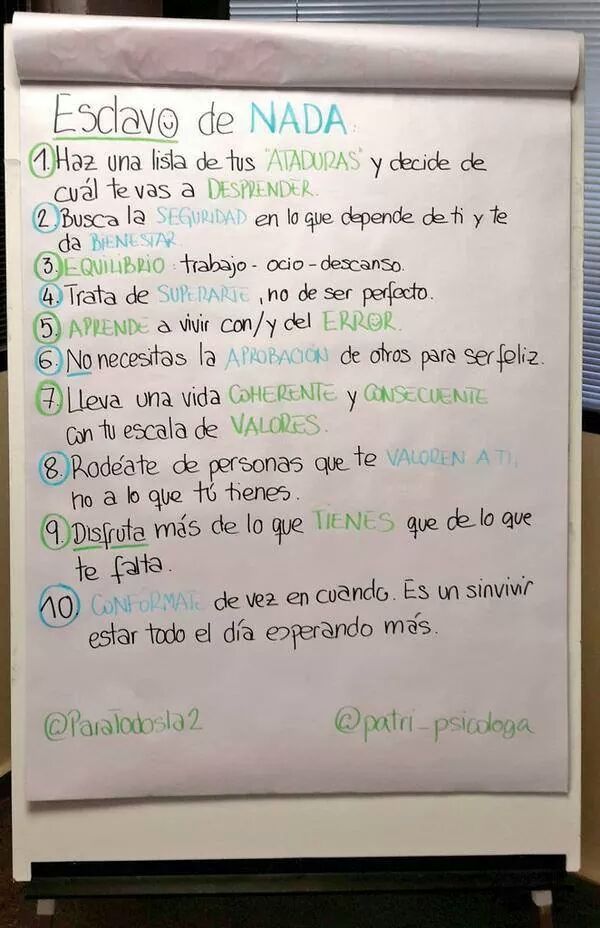 Esclavo de NADA.
1. Haz una lista de tus "ATADURAS" y decide de
cuál te vas a DESPRENDER.
2. Busca la SEGURIDAD en lo que depende de ti y te
da BIENESTAR.
3. EQUILIBRIO: trabajo - ocio - descanso.
4. Trata de SUPERARTE, no de ser perfecto.
5. APRENDE a vivir con/y del ERROR.
6. No necesitas la APROBACIÓN de otros para ser feliz.
7. Lleva una vida COHERENTE y CONSECUENTE
con tu escala de VALORES.
8. Rodéate de personas que te VALOREN A TI,
no a lo que tú tienes.
9. Disfruta más de lo que TIENES que de lo que
te falta.
10. CONFÓRMATE de vez en cuando. Es un sinvivir
estar todo el día esperando más.
@ParaTodosla2 @patri_psicologa